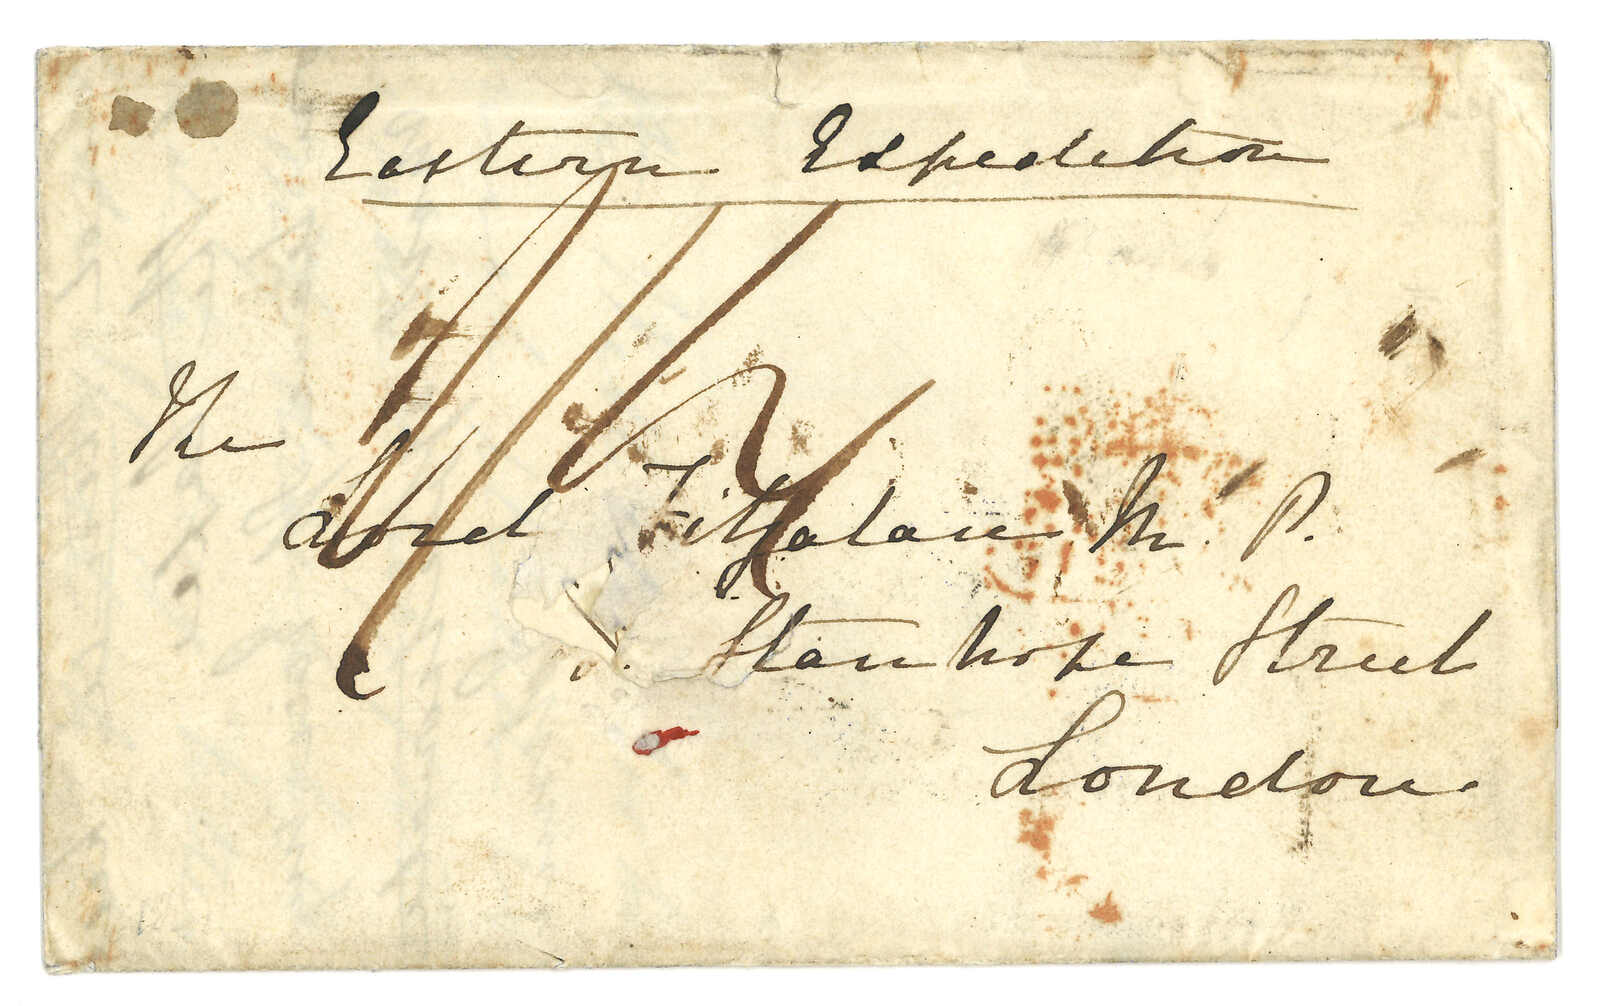 Eastern Expedition
The
Lord Fitzalan M. P.
Stanhope Street
London.